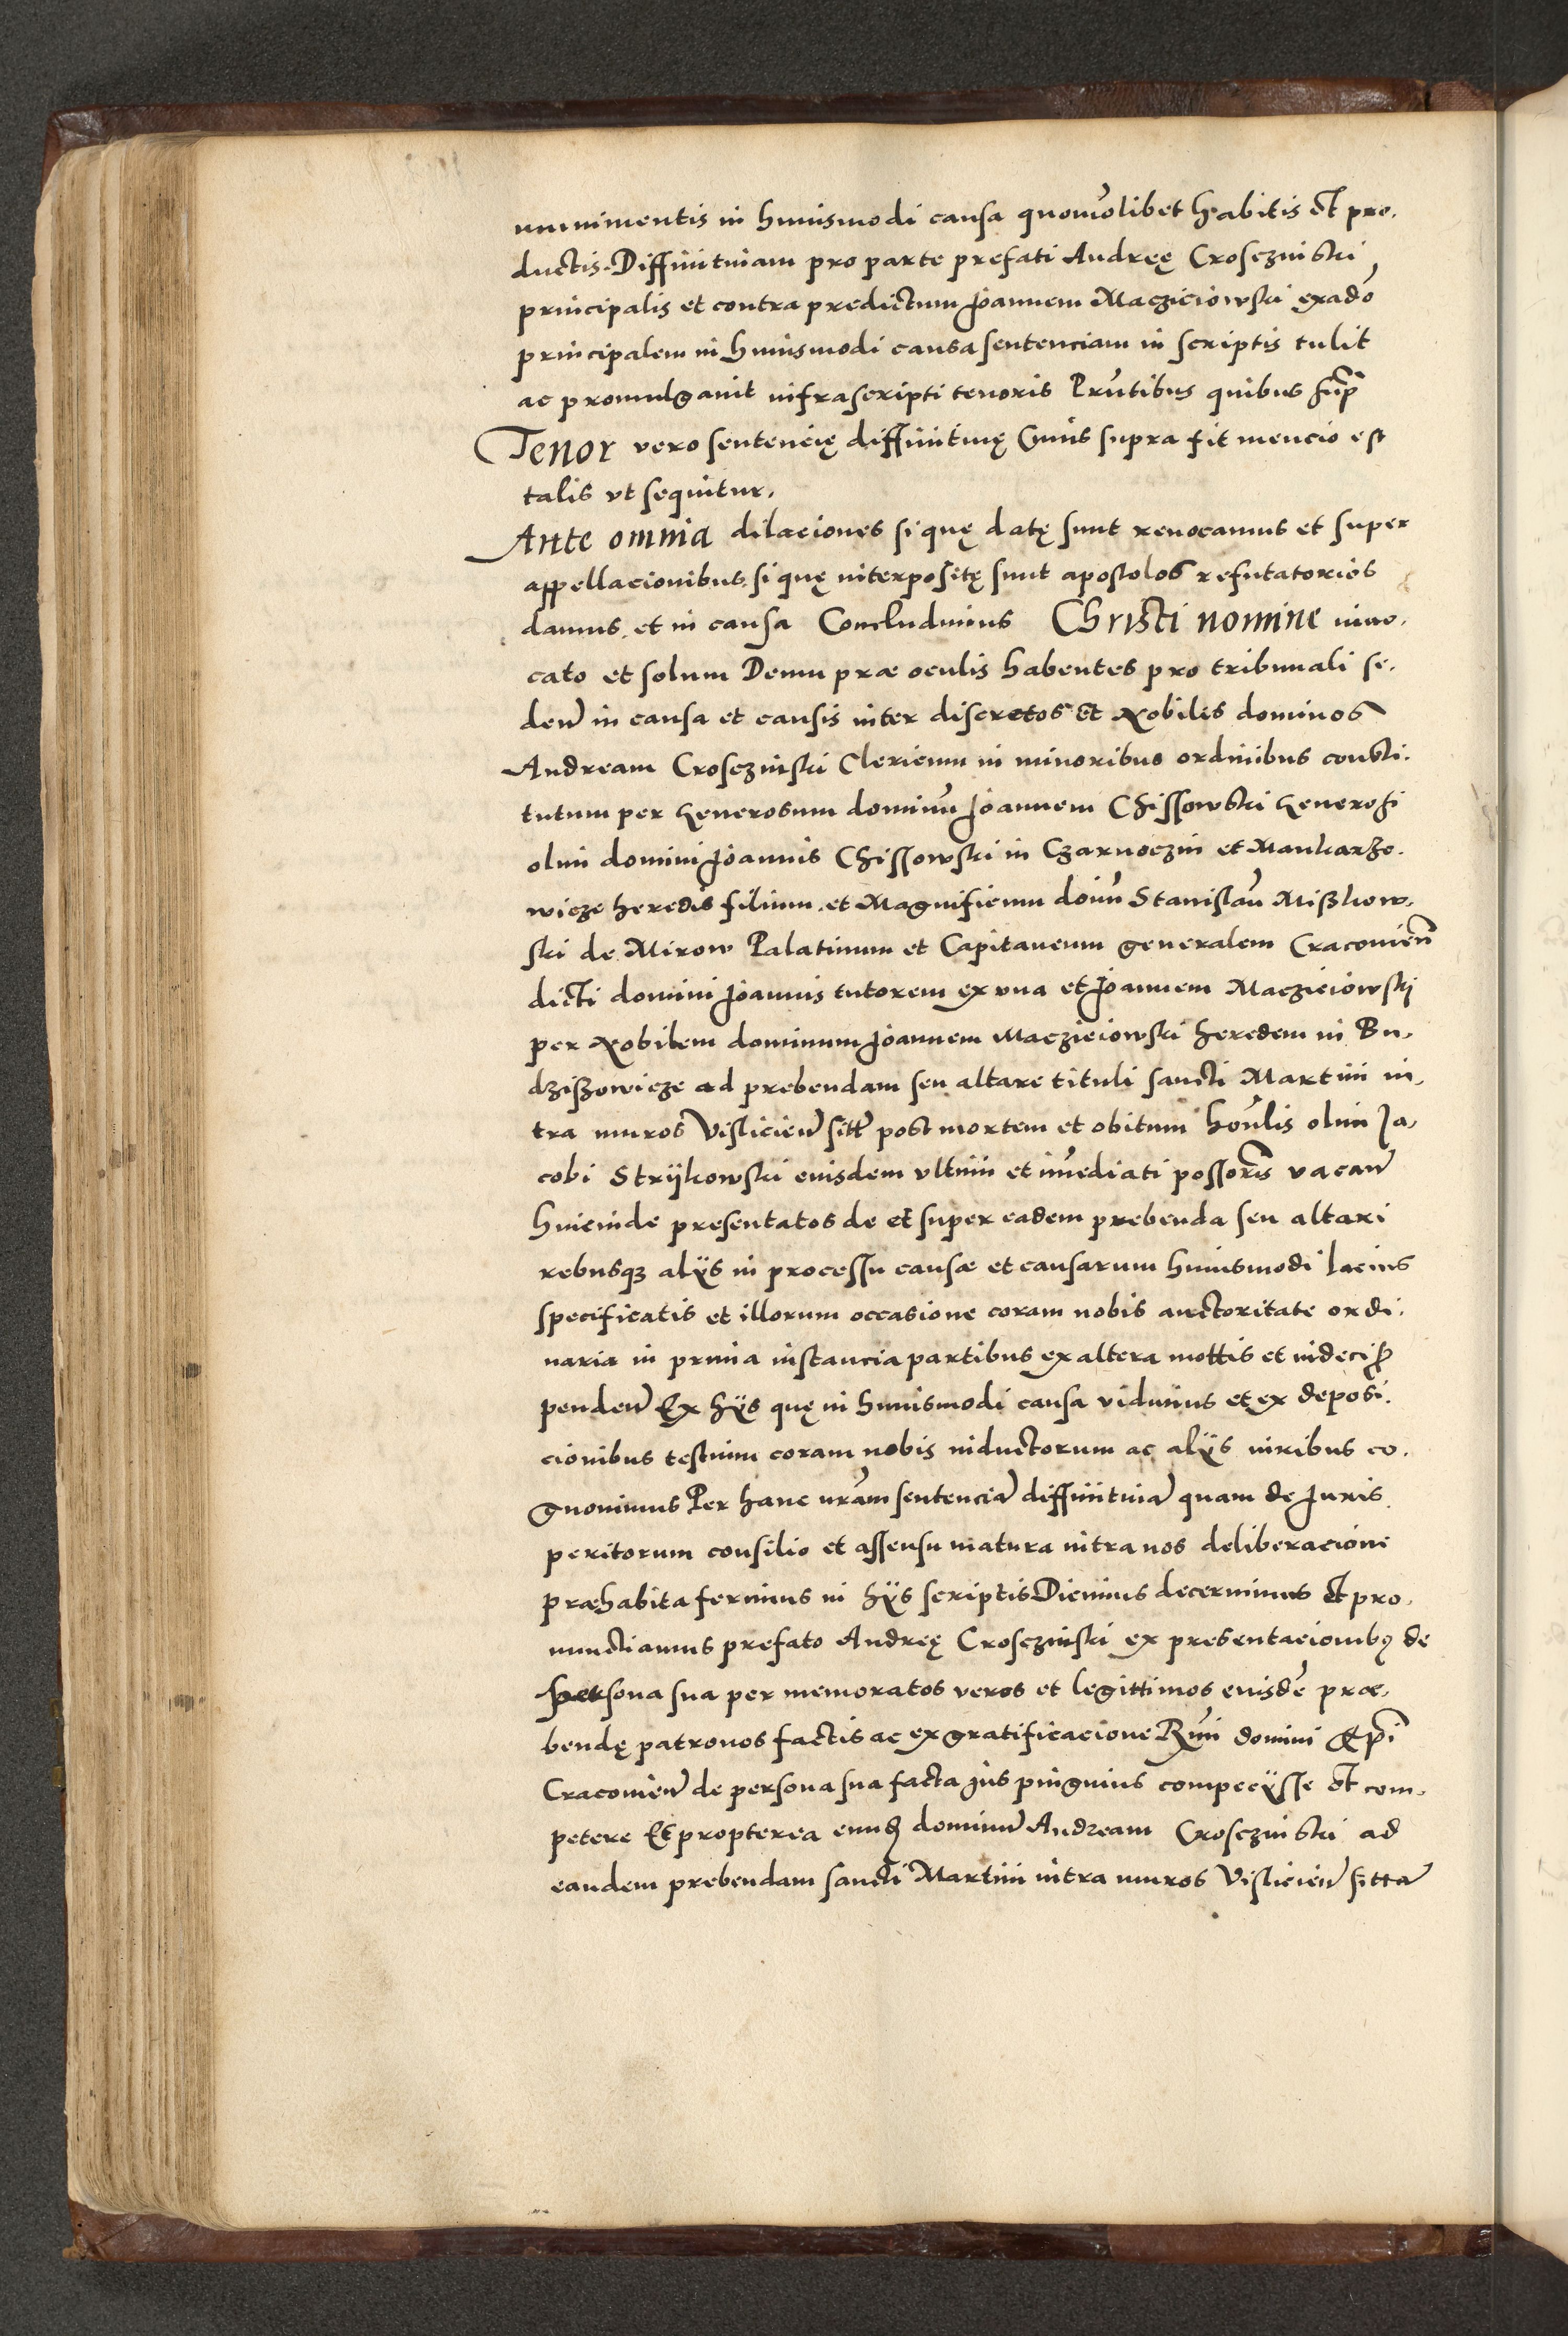 munimentis in huiusmodi causa quomōlibet habitis et pro-
ductis. Diffinitiuam pro parte prefati Andreę Crosczinski
principalis et contra predictum Joannem Macziciowski exaduo
principalem in huiusmodi causa sentenciam in scriptis tulit
ac promulgauit infrascripti tenoris Prn̄tibus quibus supr̄
Tenor vero sentencię diffinitiuę Cuius supra fit mencio est
talis vt sequitur.
Ante omnia dilaciones si quę datę sunt reuocamus et super
appellacionibus, si quę interpositę sunt apostolos refutatorios
damus, et in causa Concludimus Christi nomine inuo-
cato et solum Deum præ oculis habentes pro tribunali se-
deñ in causa et causis inter discretos et Nobiles dominos
Andream Crosczinski Clericum in minoribus ordinibus consti-
tutum per Generosum dominū Joannem Chissowski Generosi
olim domini Joannis Chissowski in Czarnoczin et Mankarzo-
wicze heredis filium, et Magnificum doīm̄ Stanislaū Mißkow-
ski de Mirow Palatinum et Capitaneum generalem Cracouieñ
dicti domini Joannis tutorem ex vna et Joannem Macziciowski
per Nobilem dominum Joannem Macziciowski heredem in Bu-
dzißowicze ad prebendam seu altare tituli sancti Martini in-
tra muros Vislicieñ sitt̄ post mortem et obitum hon̄lis olim Ja-
cobi Strijkowski eiusdem vltimi et im̄ediati possoris̄ vacañ
hincinde presentatos de et super eadem prebenda seu altari
rebusqz alÿs in processu causæ et causarum huiusmodi lacius
specificatis et illorum occasione coram nobis auctoritate ordi-
naria in prima instancia partibus ex altera mottis et indeciß
pendeñ Ex hÿs quę in huiusmodi causa vidimus et ex deposi-
cionibus testium coram nobis inductorum ac alÿs iuribus co-
gnouimus Per hanc nrām sentenciā diffinitiuā quam de Juris
peritorum consilio et assensu matura intra nos deliberacione
præhabita ferimus in hÿs scriptis Dicimus decernimus et pro-
nunctiamus prefato Andreę Crosczinski ex presentacionibꝰ de
persona sua per memoratos veros et legittimos eiusdē præ-
bendę patronos factis ac ex gratificacione Rmī domini Epī
Cracouieñ de persona sua facta jus pinguius competÿsse et com-
petere Et propterea eundem dominū Andream Crosczinski ad
eandem prebendam sancti Martini intra muros Visliciēn sittā